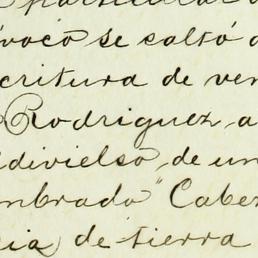 particular
vocó se saltó
critura de ven
Rodriguez, a
ldivielso de un
mbrado "Cabez
cia de tierra